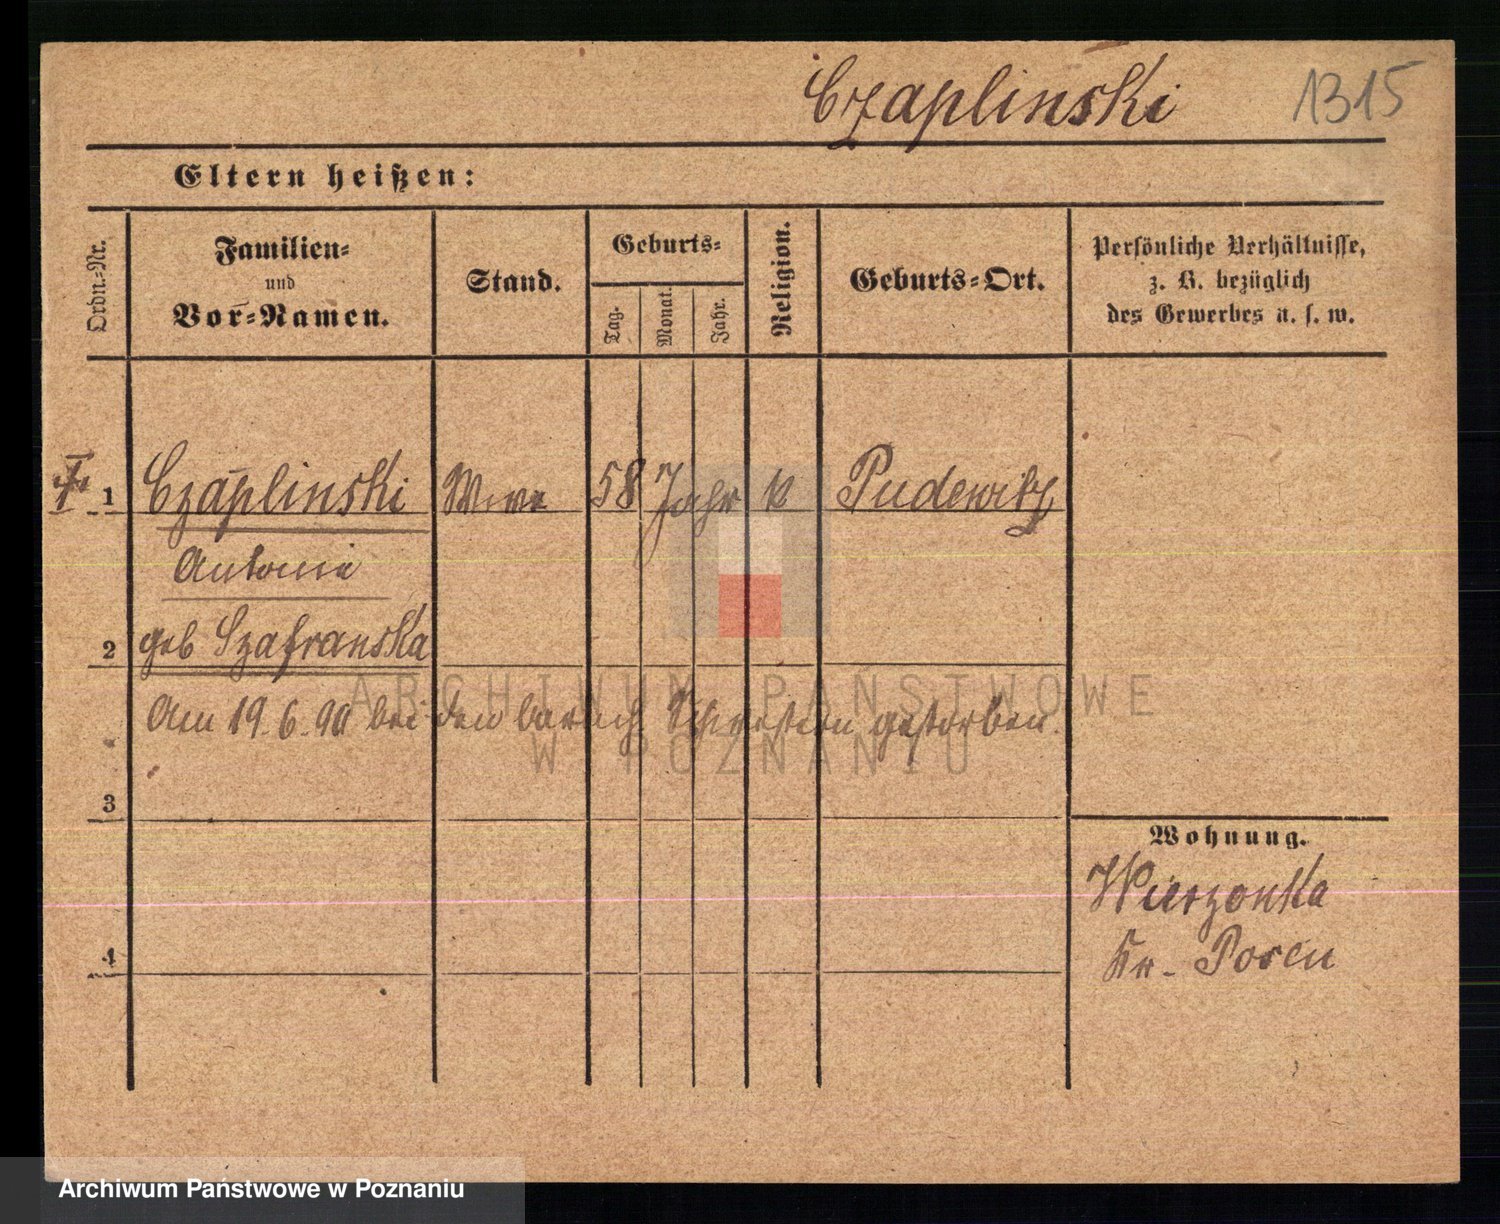 Czapliński 1315
Eltern heißen:
Ordn.=Nr.
Familien=
und
Vor=Namen.
Stand.
Geburts=
Tag.
Monat.
Jahr.
Religion.
Geburts=Ort.
Persönliche Verhältnisse,
z. B. bezüglich
des Gewerbes u. s. w.
1 Czaplinski Wwe 58 Jahr k Pudewitz
Antonie
2 geb Szafranska
Am 19.6.90 bei den barmh. Schwestern gestorben.
3
4
Wohnung.
Wierzonka
Kr. Posen
ARCHIWUM PAŃSTWOWE
W POZNANIU
Archiwum Państwowe w Poznaniu